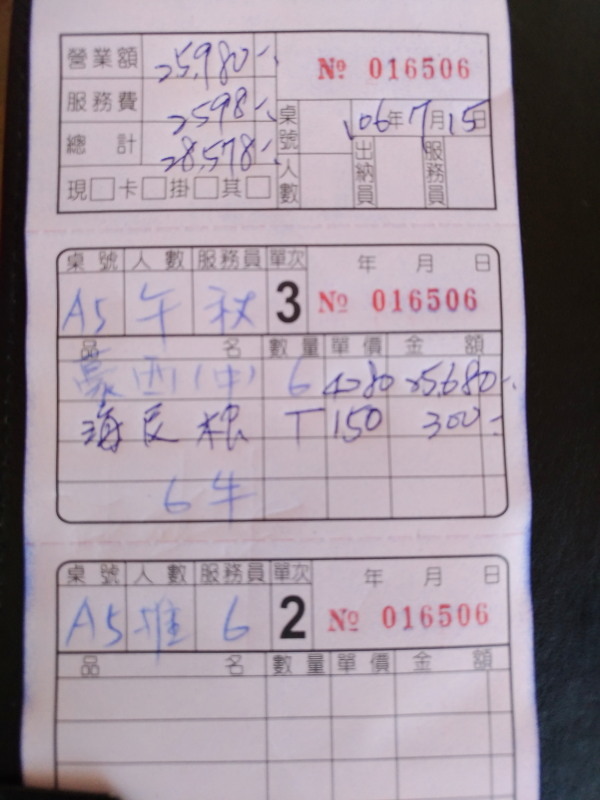 營業額 25,980 № 016506
服務費 2598
桌號 106年7月15日
總計 28,578
現□卡□掛□其□ 人數 出納員 服務員
桌號 人數 服務員 單次 年 月 日
A5 午 秋 3 № 016506
品名 數量 單價 金額
(中) 6 4280 25,680
海 根 T 150 300
6 牛
桌號 人數 服務員 單次 年 月 日
A5 6 2 № 016506
品名 數量 單價 金額